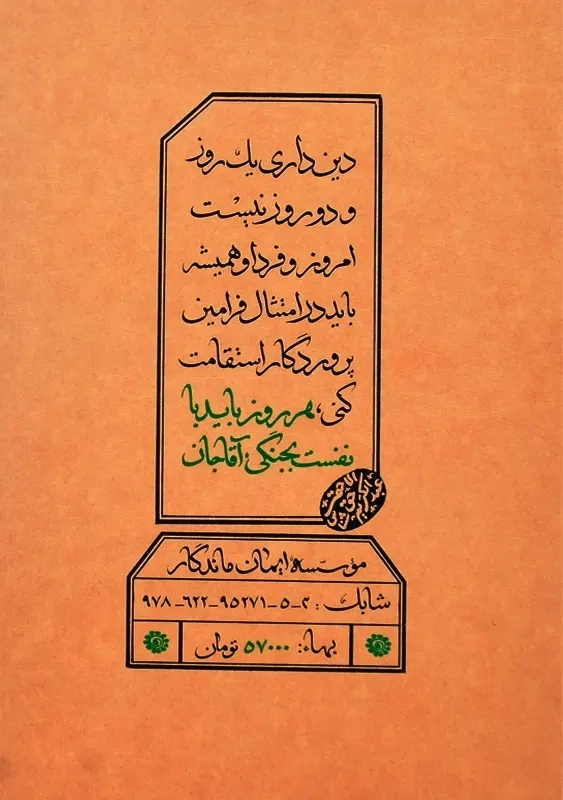 دین‌داری یك روز
و دو روز نیست
امروز و فردا و همیشه
باید در امتثال فرامین
پروردگار استقامت
کنی، هر روز باید با
نفست بجنگی؛ آقاجان
مؤسّسهٔ ایمان ماندگار
شابك: ۲-۵-۹۵۲۷۱-۶۲۲-۹۷۸
بهاء: ۵۷۰۰۰ تومان